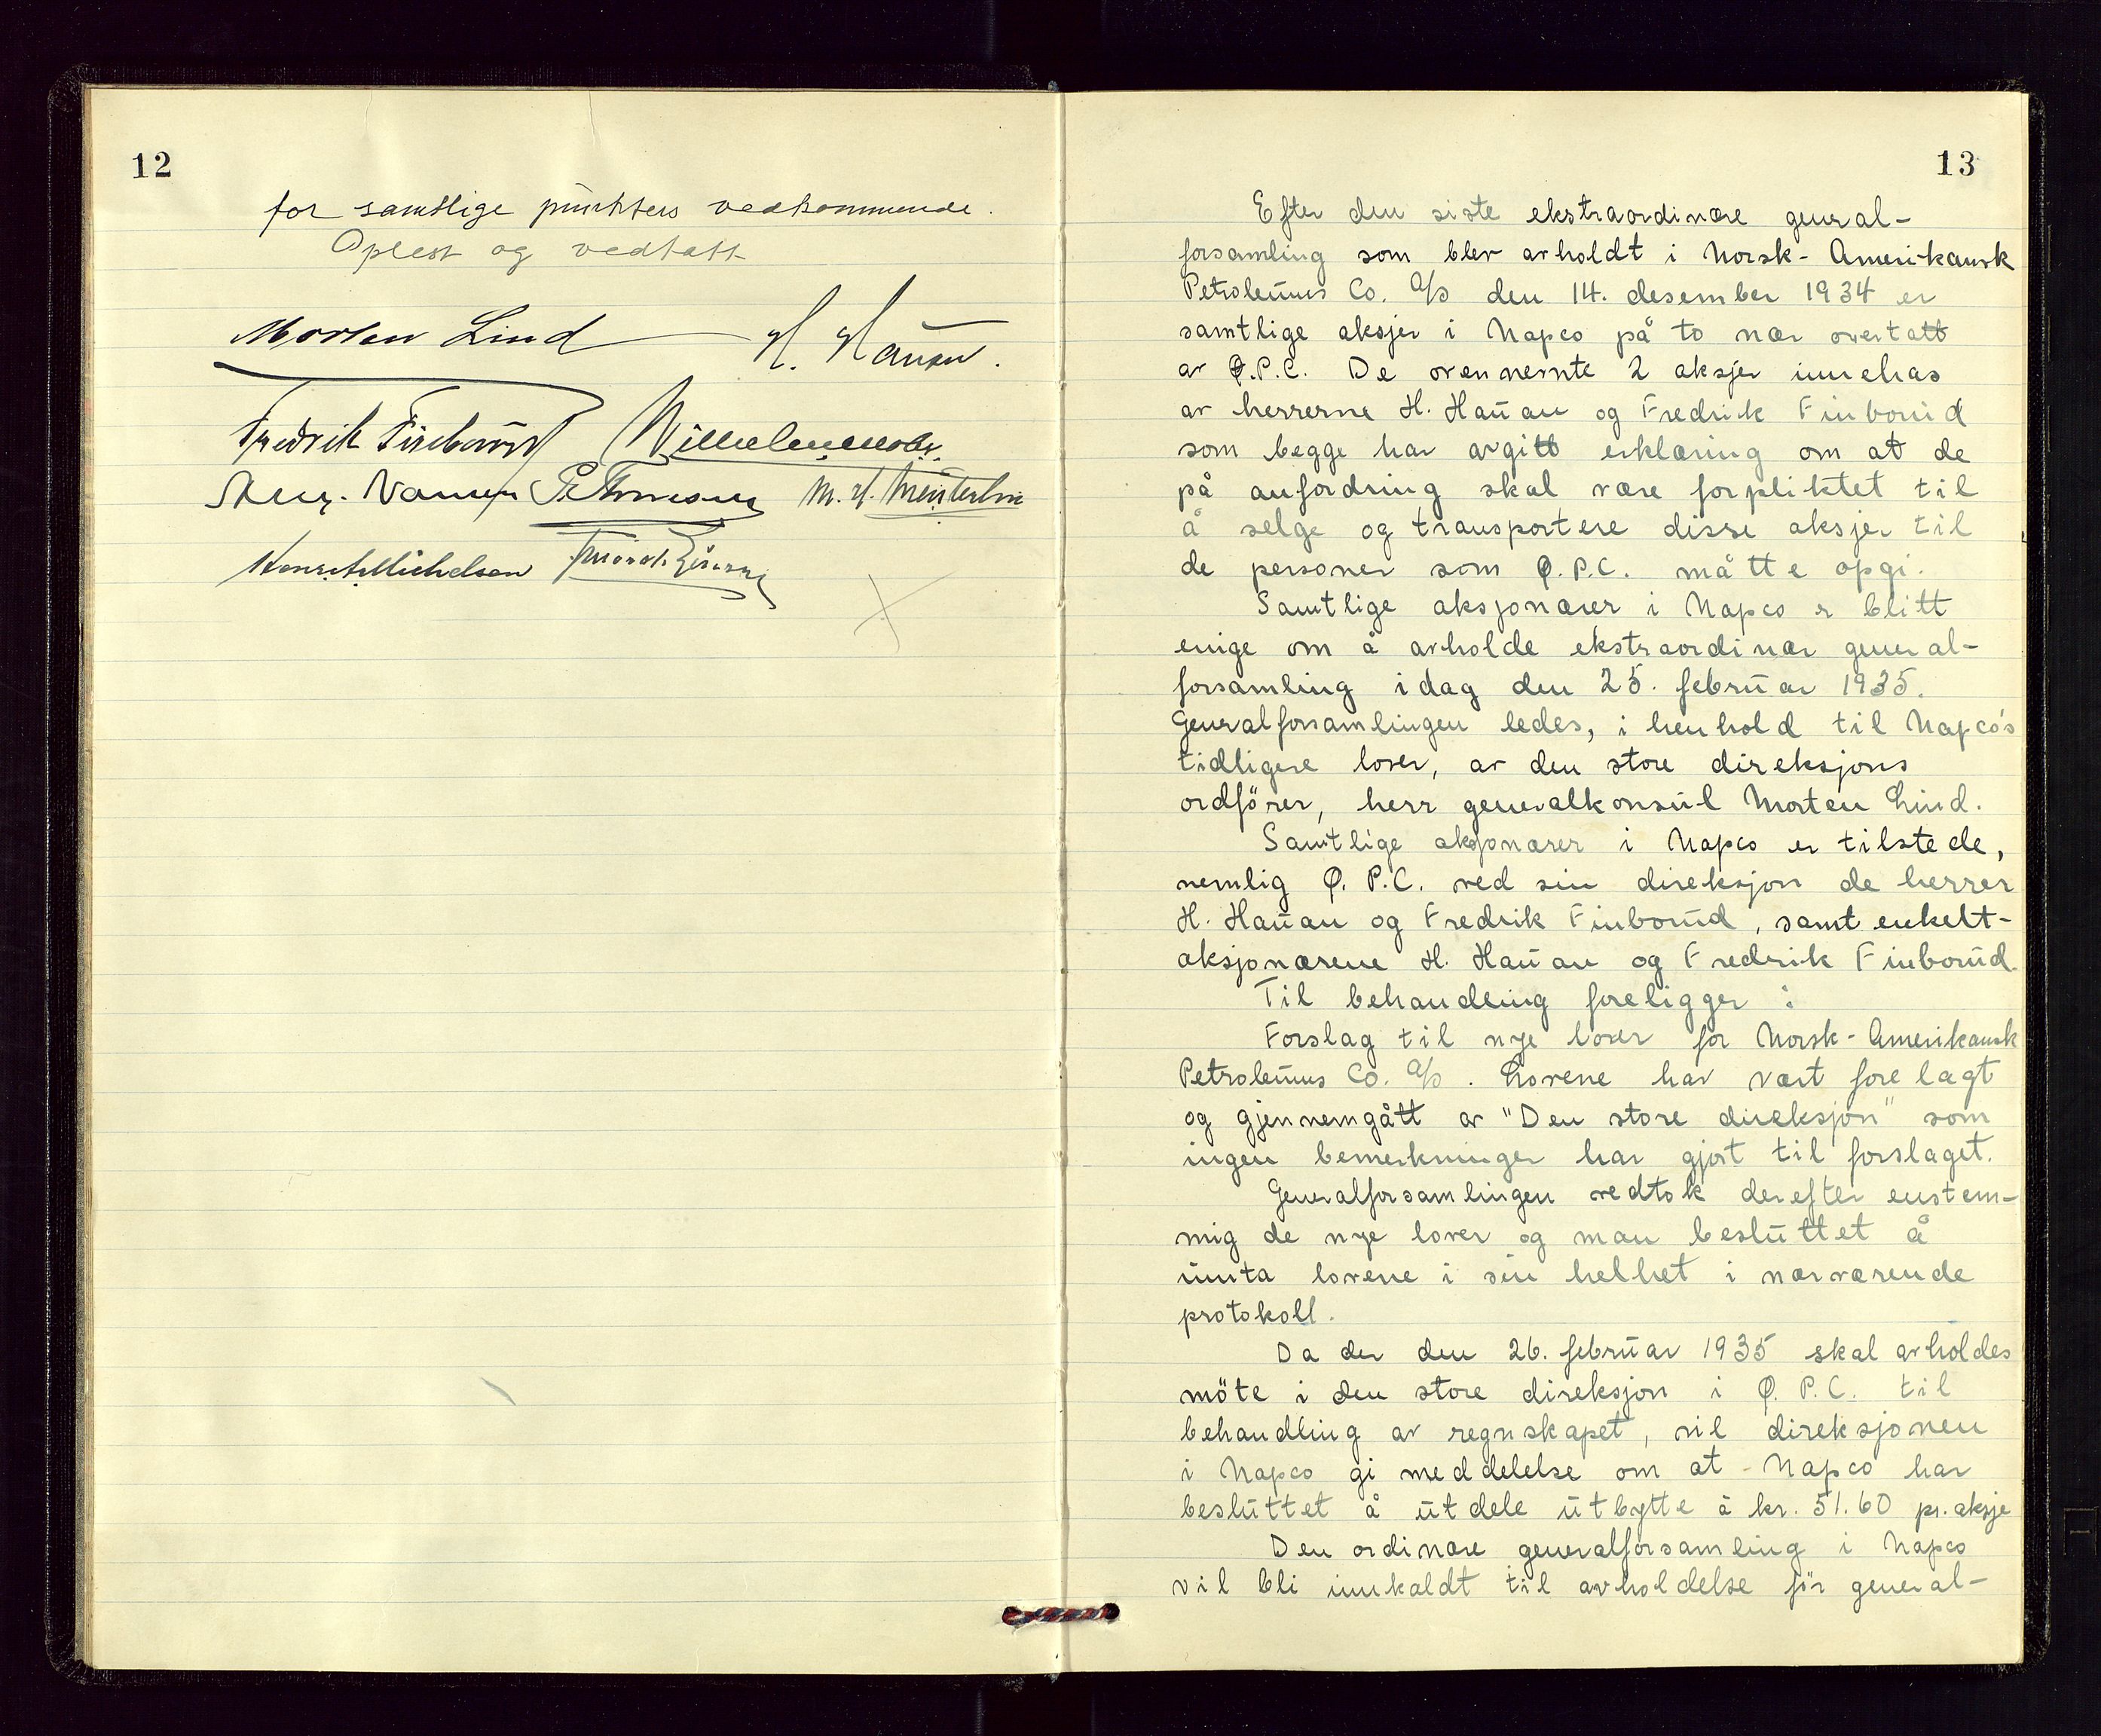 12
for samtlige punkters vedkommende.
Oplest og vedtatt
Morten Lind H. Hauan.
Fredrik Finborud
Konr. A. Michelsen
13
Efter den siste ekstraordinære general-
forsamling som blev avholdt i Norsk-Amerikansk
Petroleums Co. A/S den 14. desember 1934 er
samtlige aksjer i Napco på to nær overtatt
av Ø.P.C. De ovennevnte 2 aksjer innehas
av herrerne H. Hauan og Fredrik Finborud
som begge har avgitt erklæring om at de
på anfordring skal være forpliktet til
å selge og transportere disse aksjer til
de personer som Ø.P.C. måtte opgi.
Samtlige aksjonærer i Napco er blitt
enige om å avholde ekstraordinær general-
forsamling idag den 25. februar 1935.
Generalforsamlingen ledes, i henhold til Napco's
tidligere lover, av den store direksjons
ordförer, herr generalkonsul Morten Lind.
Samtlige aksjonærer i Napco er tilstede,
nemlig Ø. P.C. ved sin direksjon de herrer
H. Hauan og Fredrik Finborud, samt enkelt-
aksjonærene H. Hauan og Fredrik Finborud.
Til behandling foreligger :
Forslag til nye lover for Norsk-Amerikansk
Petroleums Co. A/S. Lovene har vært forelagt
og gjennemgått av "Den store direksjon" som
ingen bemerkninger har gjort til forslaget.
Generalforsamlingen vedtok derefter enstem-
mig de nye lover og man besluttet å
innta lovene i sin helhet i nærværende
protokoll.
Da der den 26. februar 1935 skal avholdes
möte i den store direksjon i Ø. P.C. til
behandling av regnskapet, vil direksjonen
i Napco gi meddelelse om at Napco har
besluttet å utdele utbytte à kr. 51.60 pr. aksje
Den ordinære generalforsamling i Napco
vil bli innkaldt til avholdelse för general-